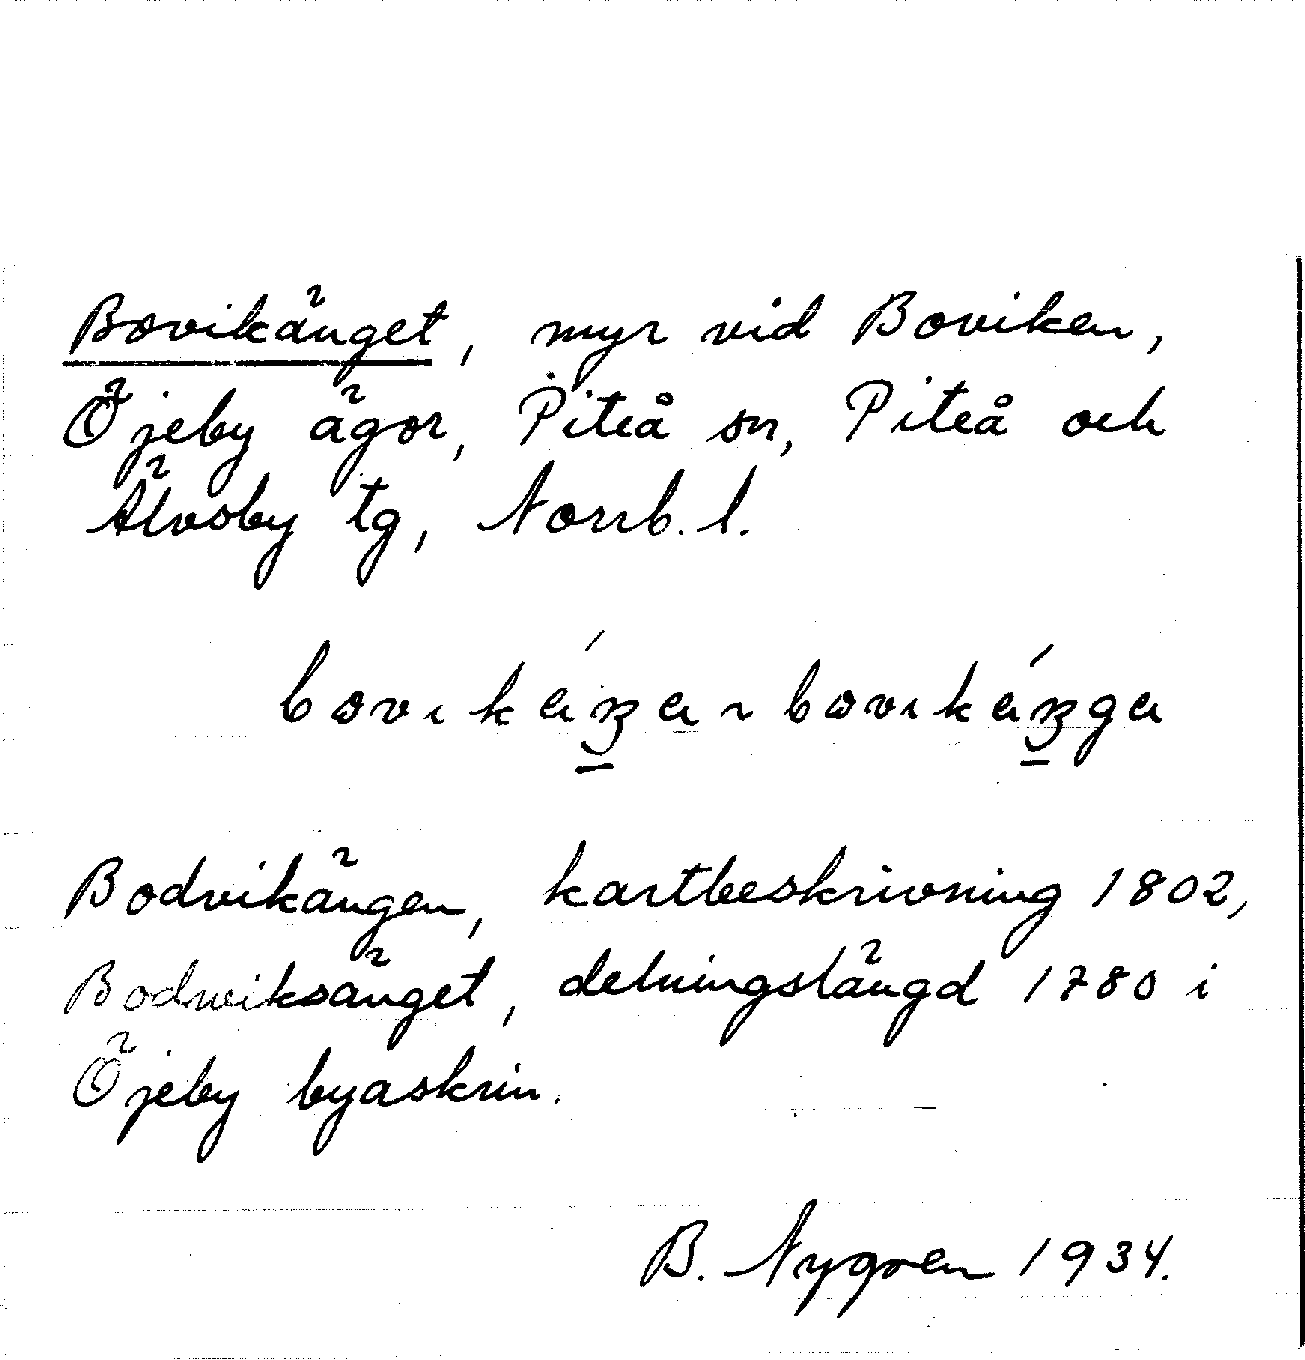 Bovikänget, myr vid Boviken,
Öjeby ägor, Piteå sn, Piteå och
Älvsby tg, Norrb. l.
Bodvikängen, kartbeskrivning 1802,
Bodwiksänget, delningslängd 1780 i
Öjeby byaskrin.
B. Nygren 1934.